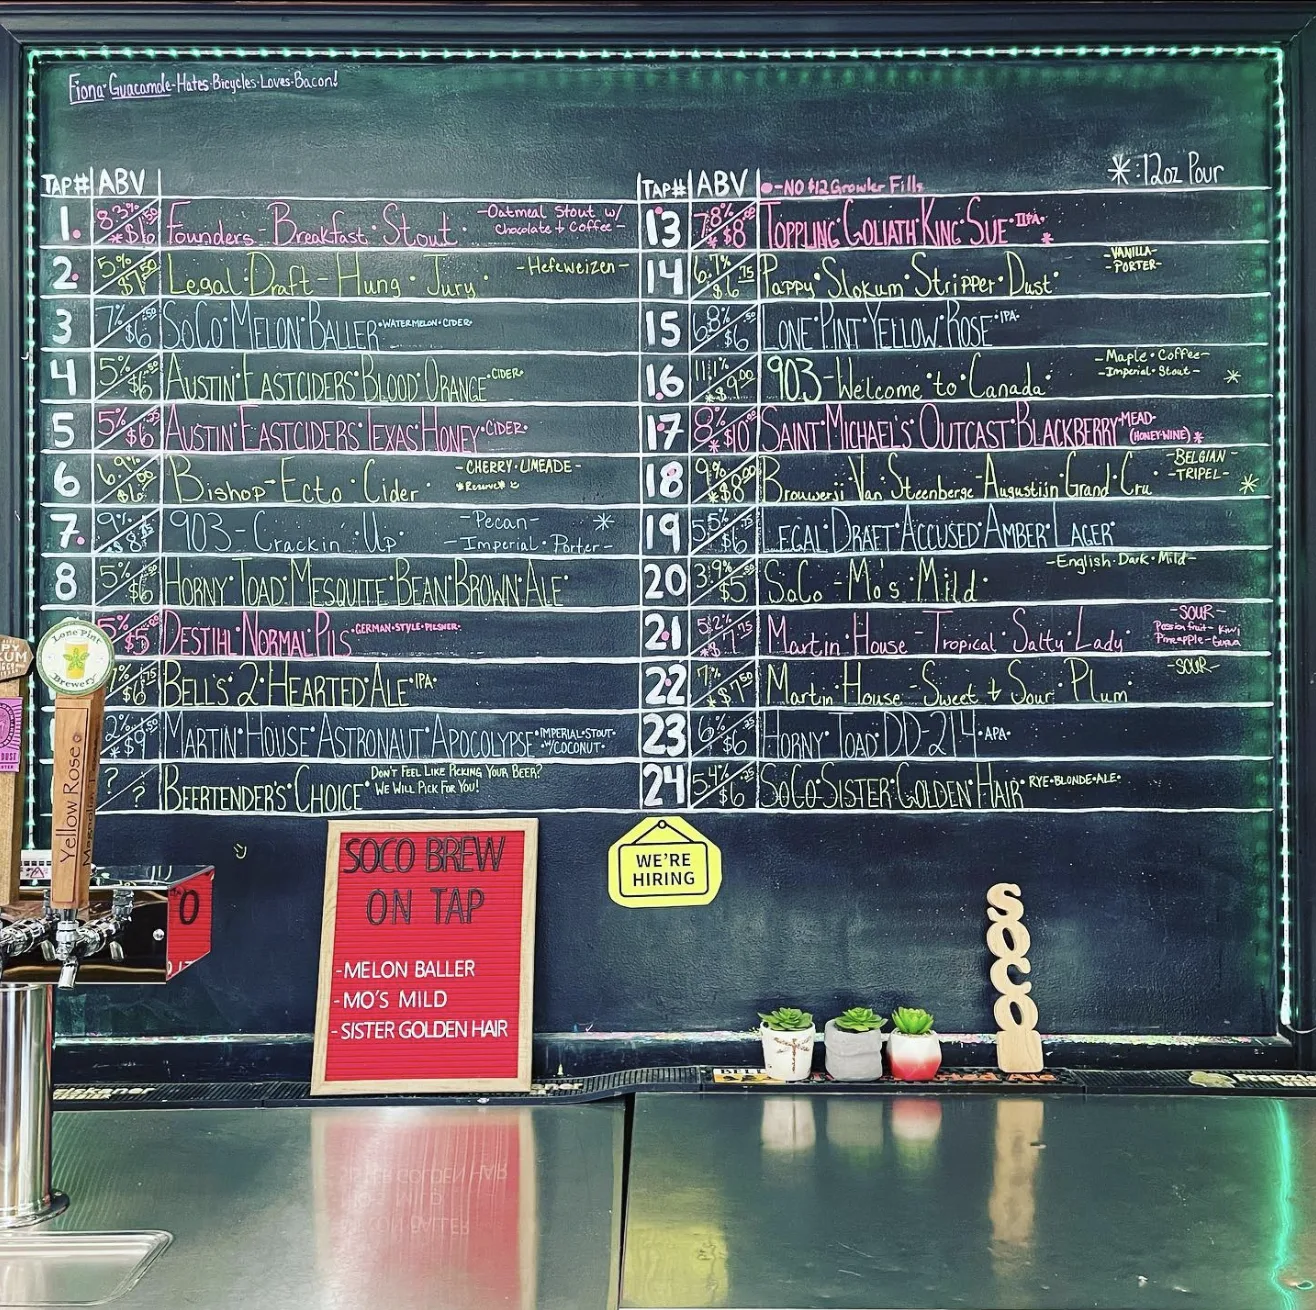 Fiona·Guacamole-Hates·Bicycles·Loves·Bacon!
TAP# ABV
1. 8.3% Founders-Breakfast·Stout· -Oatmeal Stout w/
Chocolate + Coffee-
2. 5% Legal·Draft-Hung·Jury· -Hefeweizen-
3 7% $6.50 SoCo·MELON·BALLER·WATERMELON·CIDER·
4 5% $6 AUSTIN·EASTCIDERS·BLOOD·ORANGE·CIDER·
5 5% $6 AUSTIN·EASTCIDERS·TEXAS·HONEY·CIDER·
6 6.9% Bishop-Ecto·Cider· -CHERRY·LIMEADE-
*Reserve*
7. 9% 903-Crackin·Up· -Pecan- *
-Imperial·Porter-
8 5% $6 HORNY·TOAD·MESQUITE·BEAN·BROWN·ALE·
5% $5 DESTIHL·NORMAL·PILS·GERMAN·STYLE·PILSNER·
$6.75 BELL'S·2·HEARTED·ALE·IPA·
2% *$9.50 MARTIN·HOUSE·ASTRONAUT·APOCOLYPSE·IMPERIAL·STOUT·
W/COCONUT·
? ? BEERTENDER'S·CHOICE· DON'T FEEL LIKE PICKING YOUR BEER?
WE WILL PICK FOR YOU!
TAP# ABV •-NO $12 Growler Fills *:12oz Pour
13 7.8% *$8.00 TOPPLING·GOLIATH·KING·SUE·IIPA· *
14 6.7% $6.75 Pappy·Slokum·Stripper·Dust· -VANILLA-
-PORTER-
15 6.8% $6.50 LONE·PINT·YELLOW·ROSE·IPA·
16 11.1% *$9.00 903-Welcome·to·Canada· -Maple·Coffee-
-Imperial·Stout- *
17 8% *$10.00 SAINT·MICHAEL'S·OUTCAST·BLACKBERRY·MEAD·
(HONEY·WINE) *
18 9% *$8.00 Brouwerij·Van·Steenberge-Augustijn·Grand·Cru -BELGIAN-
-TRIPEL- *
19 5.5% $6 LEGAL·DRAFT·ACCUSED·AMBER·LAGER
20 3.9% $5 SoCo-Mo's·Mild· -English·Dark·Mild-
21 5.2% $7.75 Martin·House-Tropical·Salty·Lady -SOUR-
Passionfruit-Kiwi
Pineapple-Guava
22 7% $7.50 Martin·House-Sweet+Sour·Plum -SOUR-
23 6% $6.25 HORNY·TOAD·DD-214·APA·
24 5.4% $6.25 SOCO·SISTER·GOLDEN·HAIR·RYE·BLONDE·ALE·
Lone Pint
Brewery
Yellow Rose
SOCO BREW
ON TAP
-MELON BALLER
-MO'S MILD
-SISTER GOLDEN HAIR
WE'RE
HIRING
SOCO